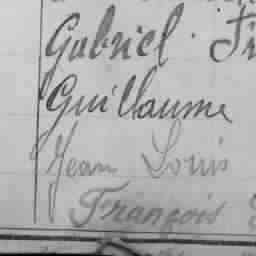 Gabriel
Guillaume
Jean Louis
François